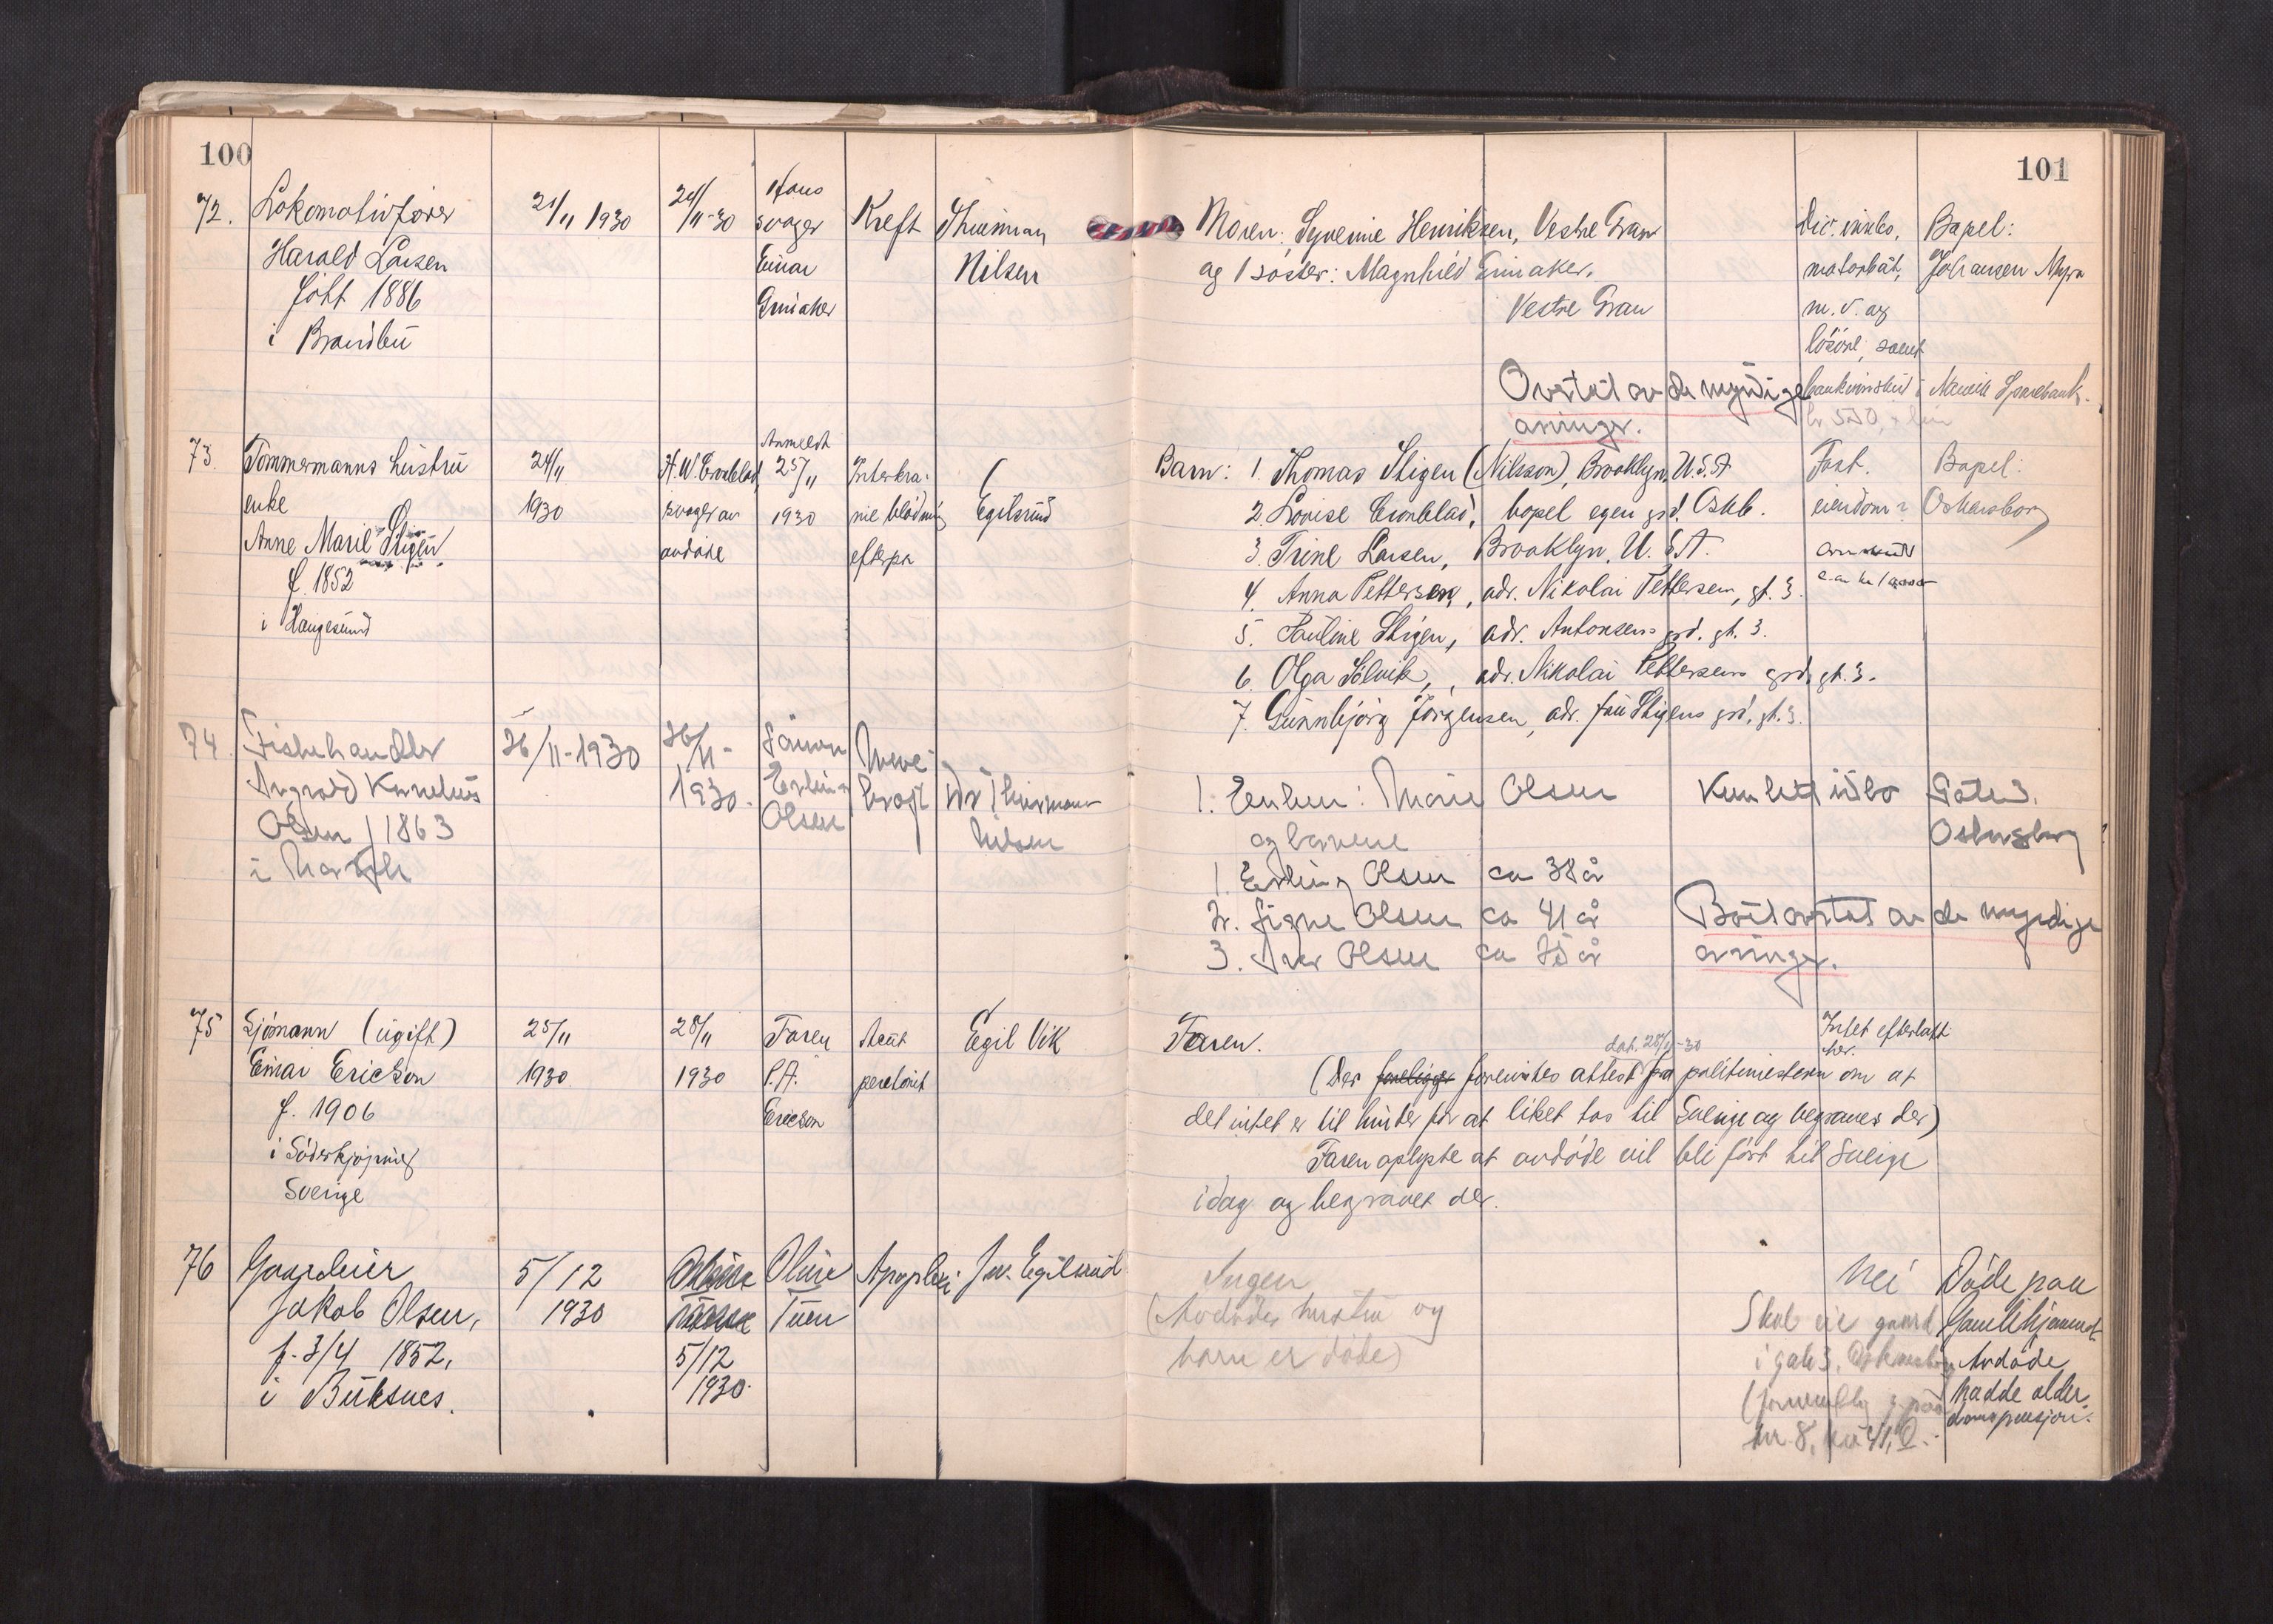 100
101
72. Lokomotivfører 21/11 1930 24/11-30 Hans svoger Einar Griniaker Kreft Thinman Nilsen
Harald Larsen
født 1886
i Brandbu
Moren: Synevine Henriksen, Vestre Gran
og 1 søster: Magnhild Griniaker,
Vestre Gran
Div. innbo,
motorbåt,
m.v. og
løsøre, samt
bankinnskud i Narvik Sparebank.
kr 550,
Bopel:
Johansen Myra
Overtatt av de myndige
arvinger.
73. Tømmermanns hustru
enke
Anne Marie Stigen
f. 1852
i Haugesund
24/11
1930
H. W. Cronblad,
svoger av
avdøde
Anmeldt
25/11
1930
Interkra-
nie blødning
efterpå
Egilsrud
Barn: 1. Thomas Stigen (Nilsson), Brooklyn, U.S.A
2. Lovise Cronblad, bopel egen grd. Oskb.
3. Trine Larsen, Brooklyn, U.S.A.
4. Anna Pettersen, adr. Nikolai Pettersen, gt. 3.
5. Pauline Stigen, adr. Antonsens grd. gt. 3.
6. Olga Sølvik, adr. Nikolai Pettersens grd. gt. 3.
7. Gunnbjørg Jørgensen, adr. fru Stigens grd, gt. 3.
Fast
eiendom?
Bopel:
Oskarsborg
74. Fiskehandler
Ingvald Kornelius
Olsen f 1863
i
26/11-1930
26/11-
1930.
Sønnen
Erling
Olsen
Dr Thinmann
Nilsen
1. Enken: Marie Olsen
og barnene
1. Erling Olsen ca 38 år
2. Signe Olsen ca 41 år
3. Iver Olsen ca 25 år
Kun litt inbo
Gate 3.
Oskarsborg
Boet overtat av de myndige
arvinger.
75 Sjømann (ugift)
Einar Ericson
f. 1906
i Söderkjøping
Sverige
25/11
1930
28/11
1930
Faren
P.A.
Ericson
Akut
peritonit
Egil Vik
Faren.
Intet efterlatt
her.
dat. 28/11-30
(Der foreligger forevistes attest fra politimesteren om at
det intet er til hinder for at liket tas til Sverige og begraves der)
Faren oplyste at avdøde vil bli ført til Sverige
idag og begravet der.
76 Gaardeier
Jakob Olsen,
f. 3/4 1852,
i Buksnes.
5/12
1930
5/12
1930.
Oline
Tuen
Apopleksi
Egilsrud
Ingen
(Avdødes hustru og
barn er døde)
Nei
Skal eie gaard
i gate 3, Oskarsborg
Døde paa
Gamlehjemmet
Avdøde
hadde alder-
domspensjon.